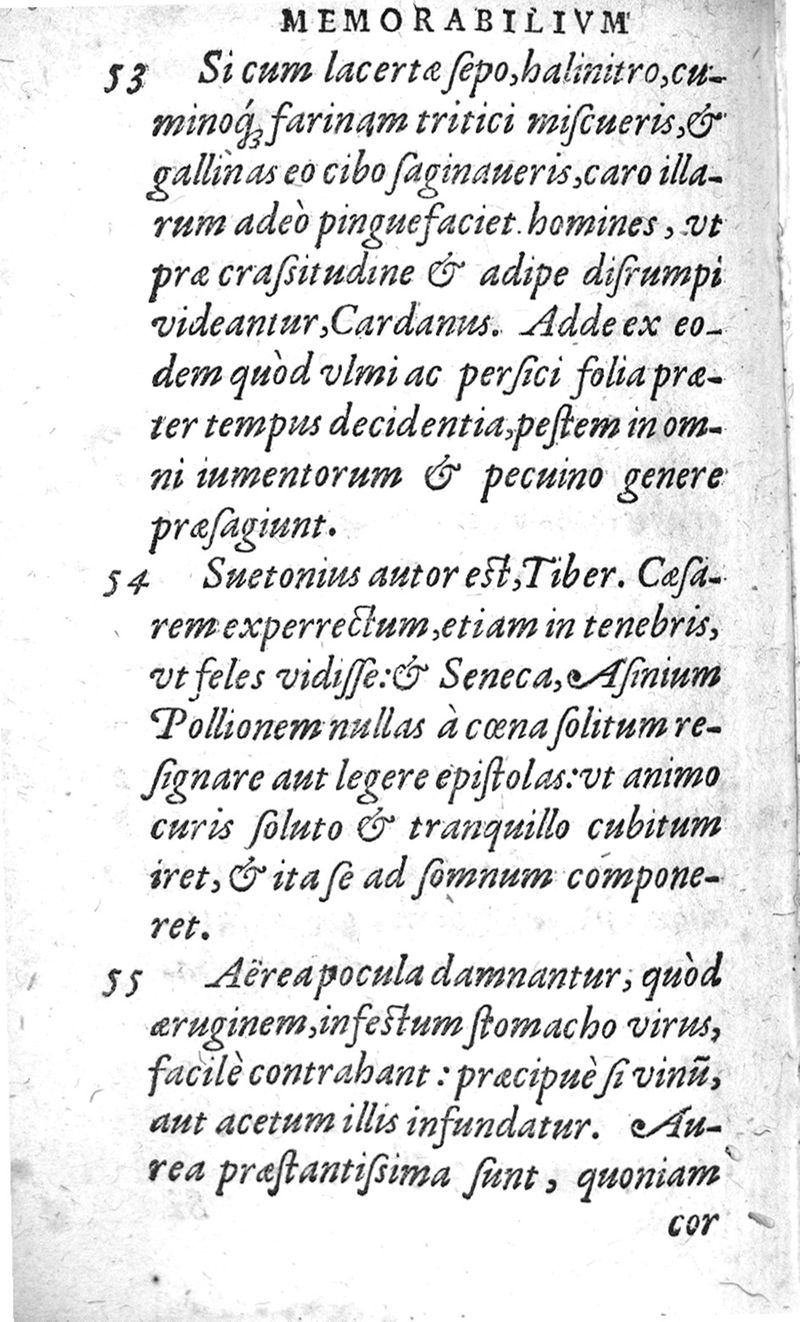 MEMORABILIVM
53 Si cum lacertæ ſepo, halinitro, cu-
minoq́ꝫ farinam tritici miſcueris, &
gallinas eo cibo ſaginaueris, caro illa-
rum adeò pinguefaciet homines, vt
præ craſsitudine & adipe diſrumpi
videantur, Cardanus. Adde ex eo-
dem quòd vlmi ac perſici folia præ-
ter tempus decidentia, peſtem in om-
ni iumentorum & pecuino genere
præſagiunt.
54 Suetonius autor eſt, Tiber. Cæſa-
rem experrectum, etiam in tenebris,
vt feles vidiſſe: & Seneca, Aſinium
Pollionem nullas à cœna ſolitum re-
ſignare aut legere epiſtolas: vt animo
curis ſoluto & tranquillo cubitum
iret, & ita ſe ad ſomnum compone-
ret.
55 Aërea pocula damnantur, quòd
æruginem, infeſtum ſtomacho virus,
facilè contrahant: præcipuè ſi vinū,
aut acetum illis infundatur. Au-
rea præſtantiſsima ſunt, quoniam
cor